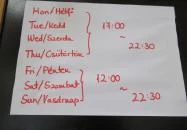 Mon/Hétfő
Tue/Kedd 17:00
Wed/Szerda ~
Thu/Csütörtök 22:30
Fri/Péntek 12:00
Sat/Szombat ~
Sun/Vasárnap 22:30